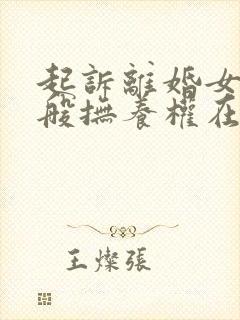 起訴離婚女
般撫養權在
王燦張